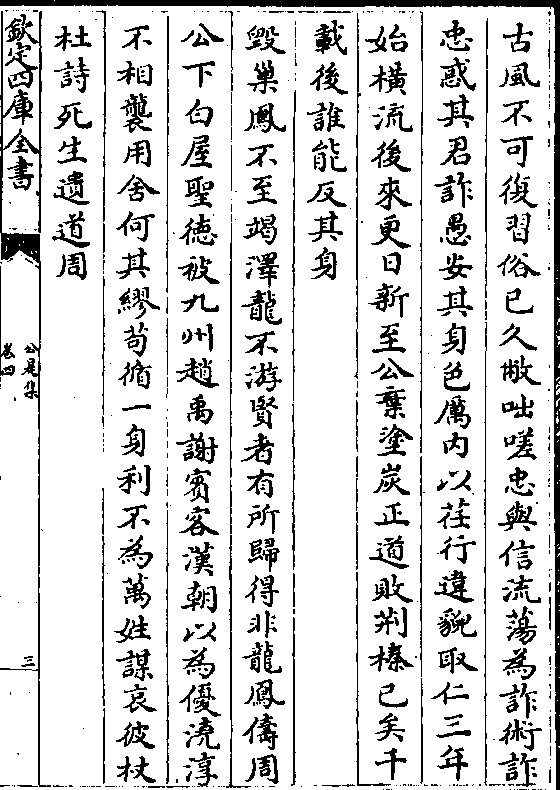 古風不可復習俗已久敝咄嗟忠與信流蕩為詐術詐
忠惑其君詐愚安其身色厲内以荏行違貌取仁三年
始横流後來更日新至公棄塗炭正道敗荆榛已矣千
載後誰能反其身
毀巢鳳不至竭澤龍不游賢者有所歸得非龍鳳儔周
公下白屋聖徳被九州趙禹謝賓客漢朝以為優澆淳
不相襲用舍何其繆苟循一身利不為萬姓謀哀彼杕
杜詩死生遺道周
欽定四庫全書
公是集
卷四
三